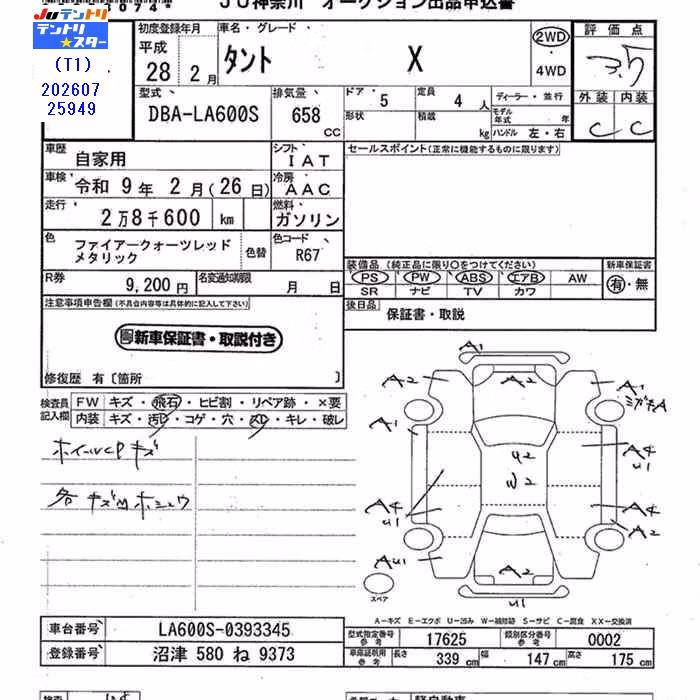 1074*
JU神奈川 オークション出品申込書
JUテントリ
テントリ★スター
(T1)
202607
25949
初度登録年月
平成
28年 2月
車名・グレード
タント X
2WD
4WD
評価点
3.5
外装 内装
C C
型式
DBA-LA600S
排気量
658
CC
ドア 5
形状
定員 4人
積載 kg
ディーラー・並行
モデル年式 年
ハンドル 左・右
車歴
自家用
シフト
IAT
セールスポイント(正常に機能するものに限ります)
車検
令和 9年 2月(26日)
冷房
AAC
走行
2万8千600 km
燃料
ガソリン
色
ファイアークォーツレッド
メタリック
色替
色コード
R67
装備品(純正品に限り○をつけてください)
新車保証書
PS PW ABS エアB AW
有・無
SR ナビ TV カワ
R券
9,200円
名変通知期限
月 日
後日品
保証書・取説
注意事項申告欄(不具合内容等は具体的に記入して下さい)
新車保証書・取説付き
修復歴 有〔箇所 〕
検査員
記入欄
FW キズ・飛石・ヒビ割・リペア跡・×要
内装 キズ・汚レ・コゲ・穴・スレ・キレ・破レ
ホイールCPキズ
各キズ凹ホシュウ
A1
A2 A2 A1
ミガキA
A1
A4
U1
U2
W2
A4
U1
A4
A2
AU1 A2
U1
スペア
A-キズ E-エクボ U-凹み W-補修跡 S-サビ C-腐食 XX-交換済
車台番号 LA600S-0393345
登録番号 沼津 580 ね 9373
型式指定番号 17625 類別区分番号 0002
車庫証明用参考 長さ 339 cm 幅 147 cm 高さ 175 cm
軽自動車